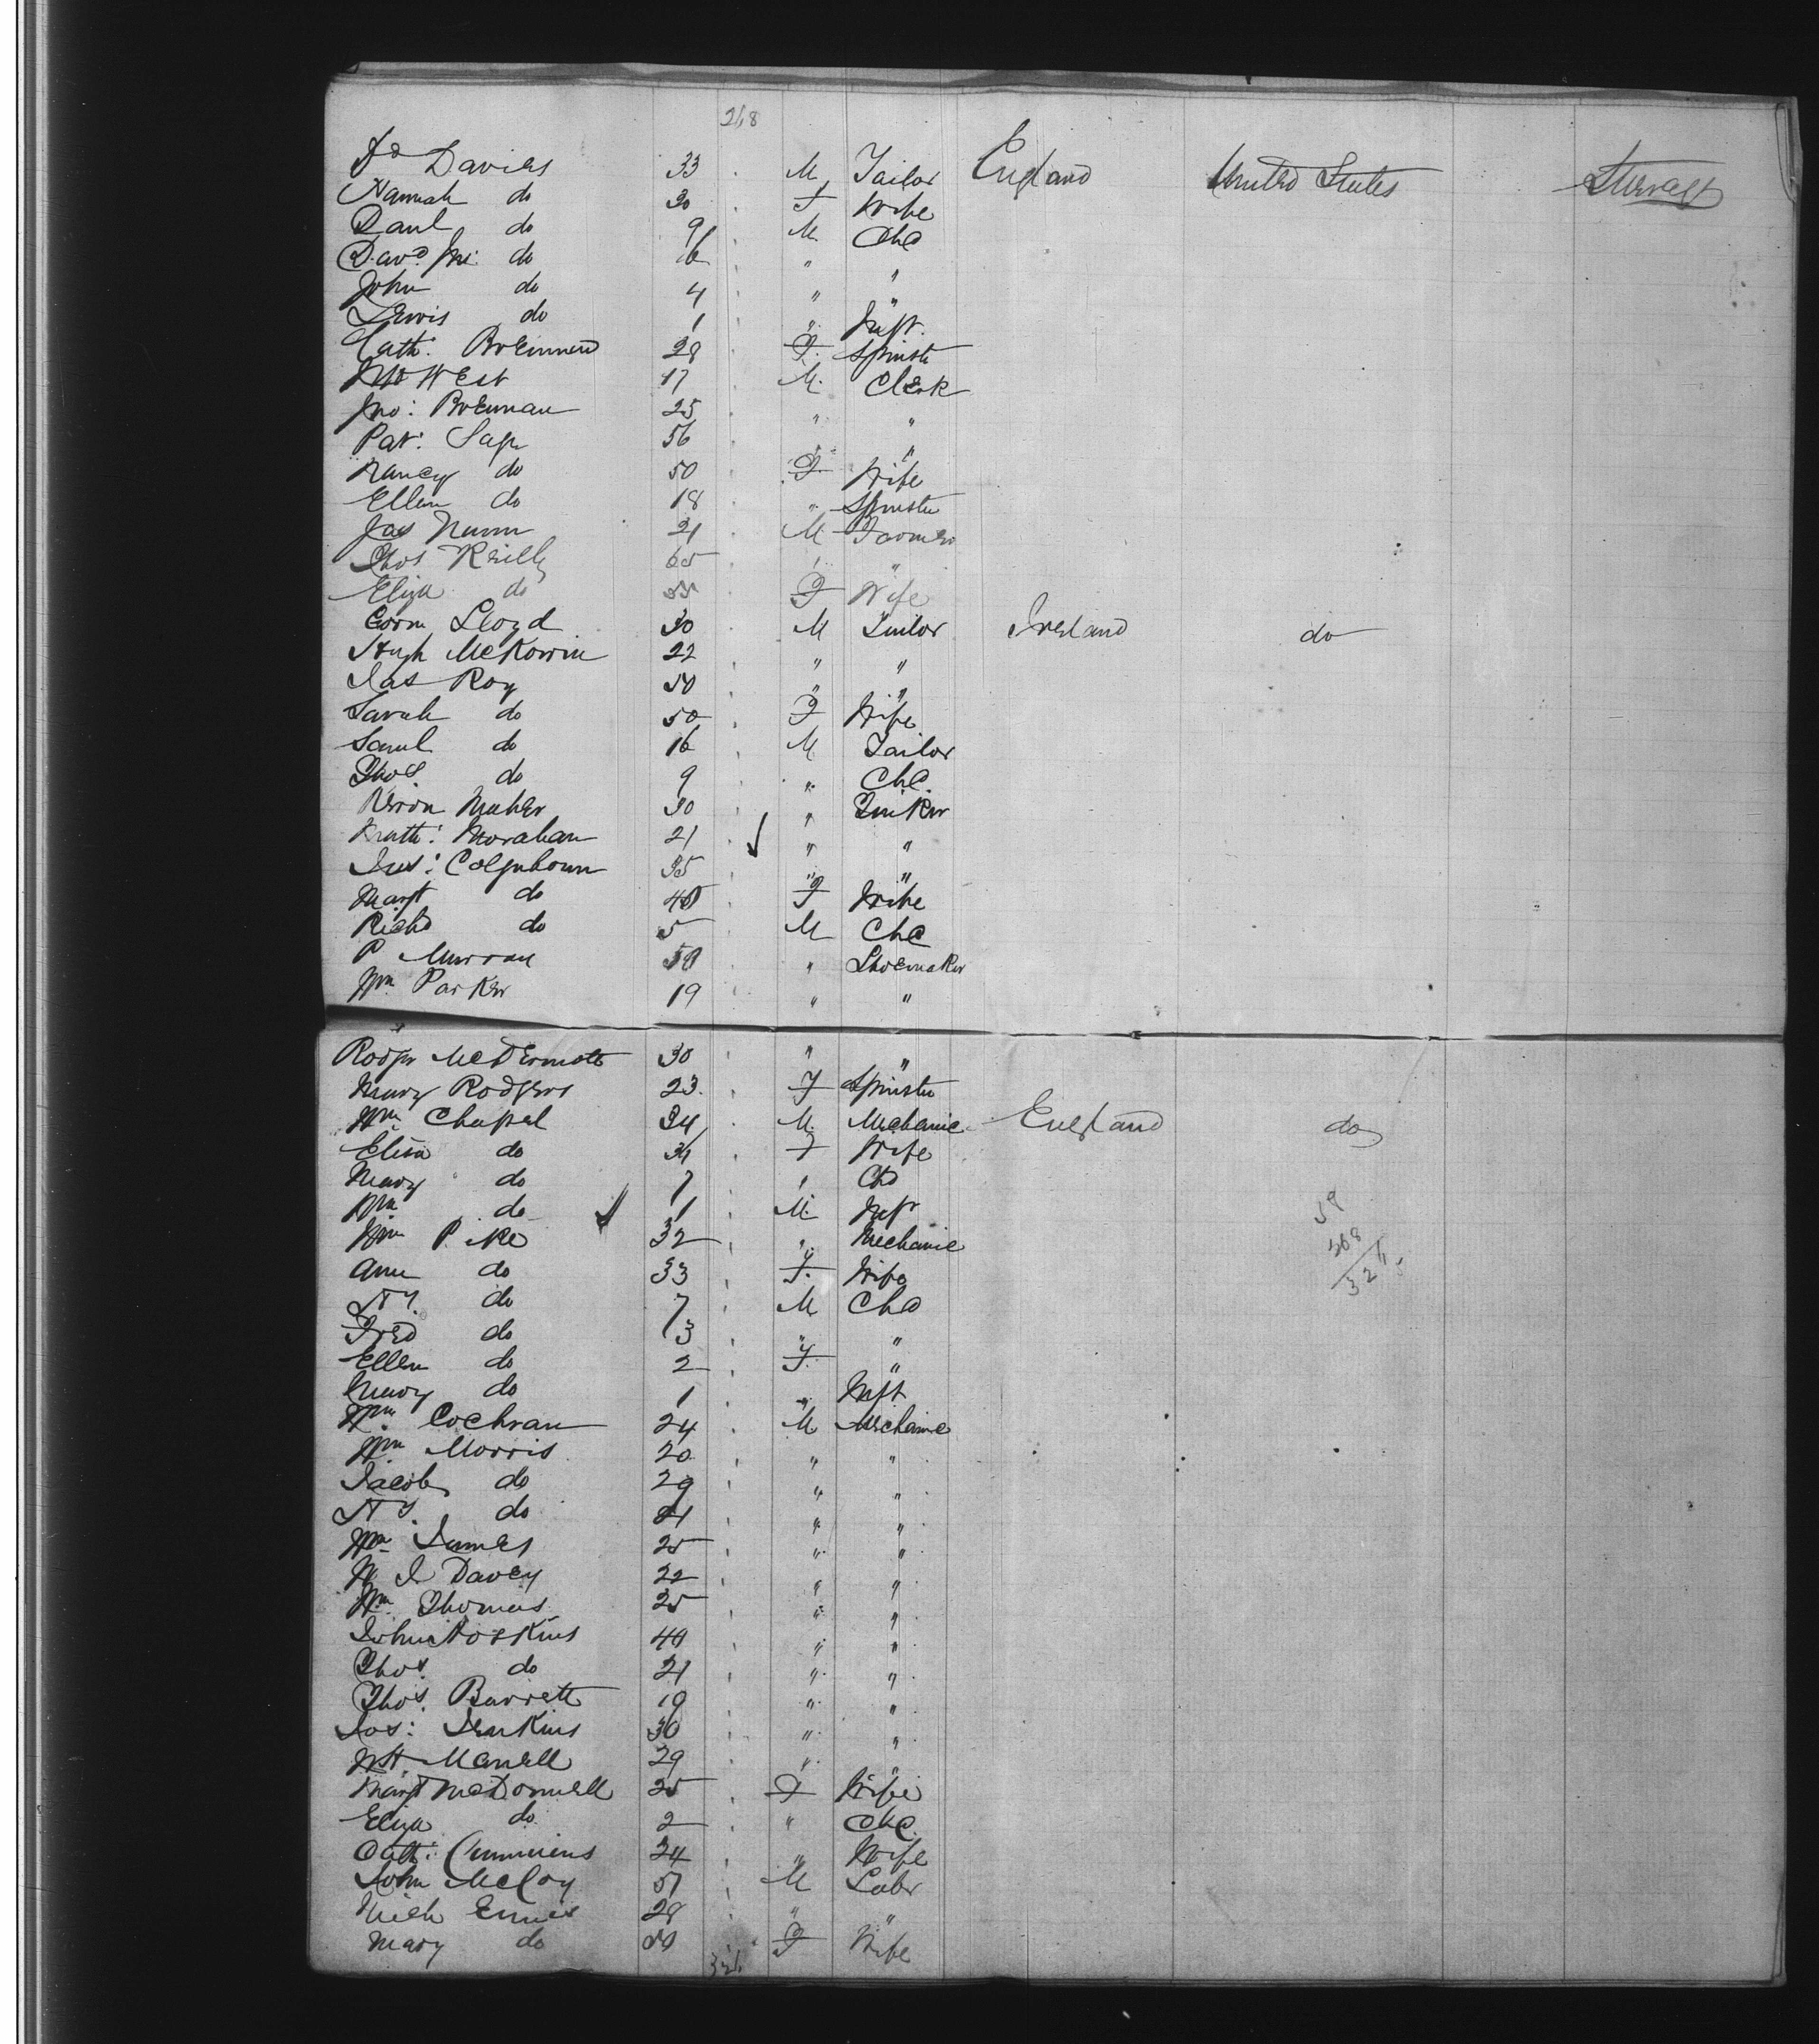 268
Dd Davies 33 M Tailor England United States Steerage
Hannah do 30 F Wife
Danl do 9 M Chd
Davd Jnr: do 6 " "
John do 4 " "
Lewis do 1 " Inft.
Cath: Brennand 28 F. Spinstr
West 17 M. Clerk
Jno: Brennan 25 " "
Pat: 56 " "
Nancy do 50 F Wife
Ellen do 18 " Spinster
Jas Nunn 21 M Farmer
Thos Reilly 65 " "
Eliza do 55 F Wife
Lloyd 30 M Tailor Ireland do
Hugh McKowin 22 " "
Jas Roy 50 " "
Sarah do 50 F Wife
Saml do 16 M Tailor
Thos. do 9 " Chd.
Maher 30 " Tinker
Matt: Morahan 21 " "
Jas: Colquhoun 35 " "
Margt do 40 F Wife
Richd do 5 M Chd
P Murray 50 " Shoemaker
Wm Parker 19 " "
Rodgr McDermott 30 " "
Mary Rodgers 23. F Spinster
Wm Chapel 34 M. Mechanic England do
Eliza do 34 F Wife
Mary do 7 " Chd
Wm do 1 M. Inft
Wm Pike 32 " Mechanic
59
268
326
Ann do 33 F. Wife
do 7 M Chd
Fred do 3 " "
Ellen do 2 F. "
Mary do 1 " Inft
Wm Cochran 24 M Mechanic
Wm Morris 20 " "
Jacob do 29 " "
do 21 " "
Wm James 25 " "
W J Davey 22 " "
Wm. Thomas 25 " "
John Hoskins 40 " "
Thos. do 21 " "
Thos. Barrett 19 " "
Jos: Jenkins 30 " "
29 " "
Margt McDonnell 25 F Wife
Eliza do 2 " Chd.
Cath: Cummins 24 " Wife
John McCoy 51 M Labr
Mich Ennis 28 " "
Mary do F Wife
326